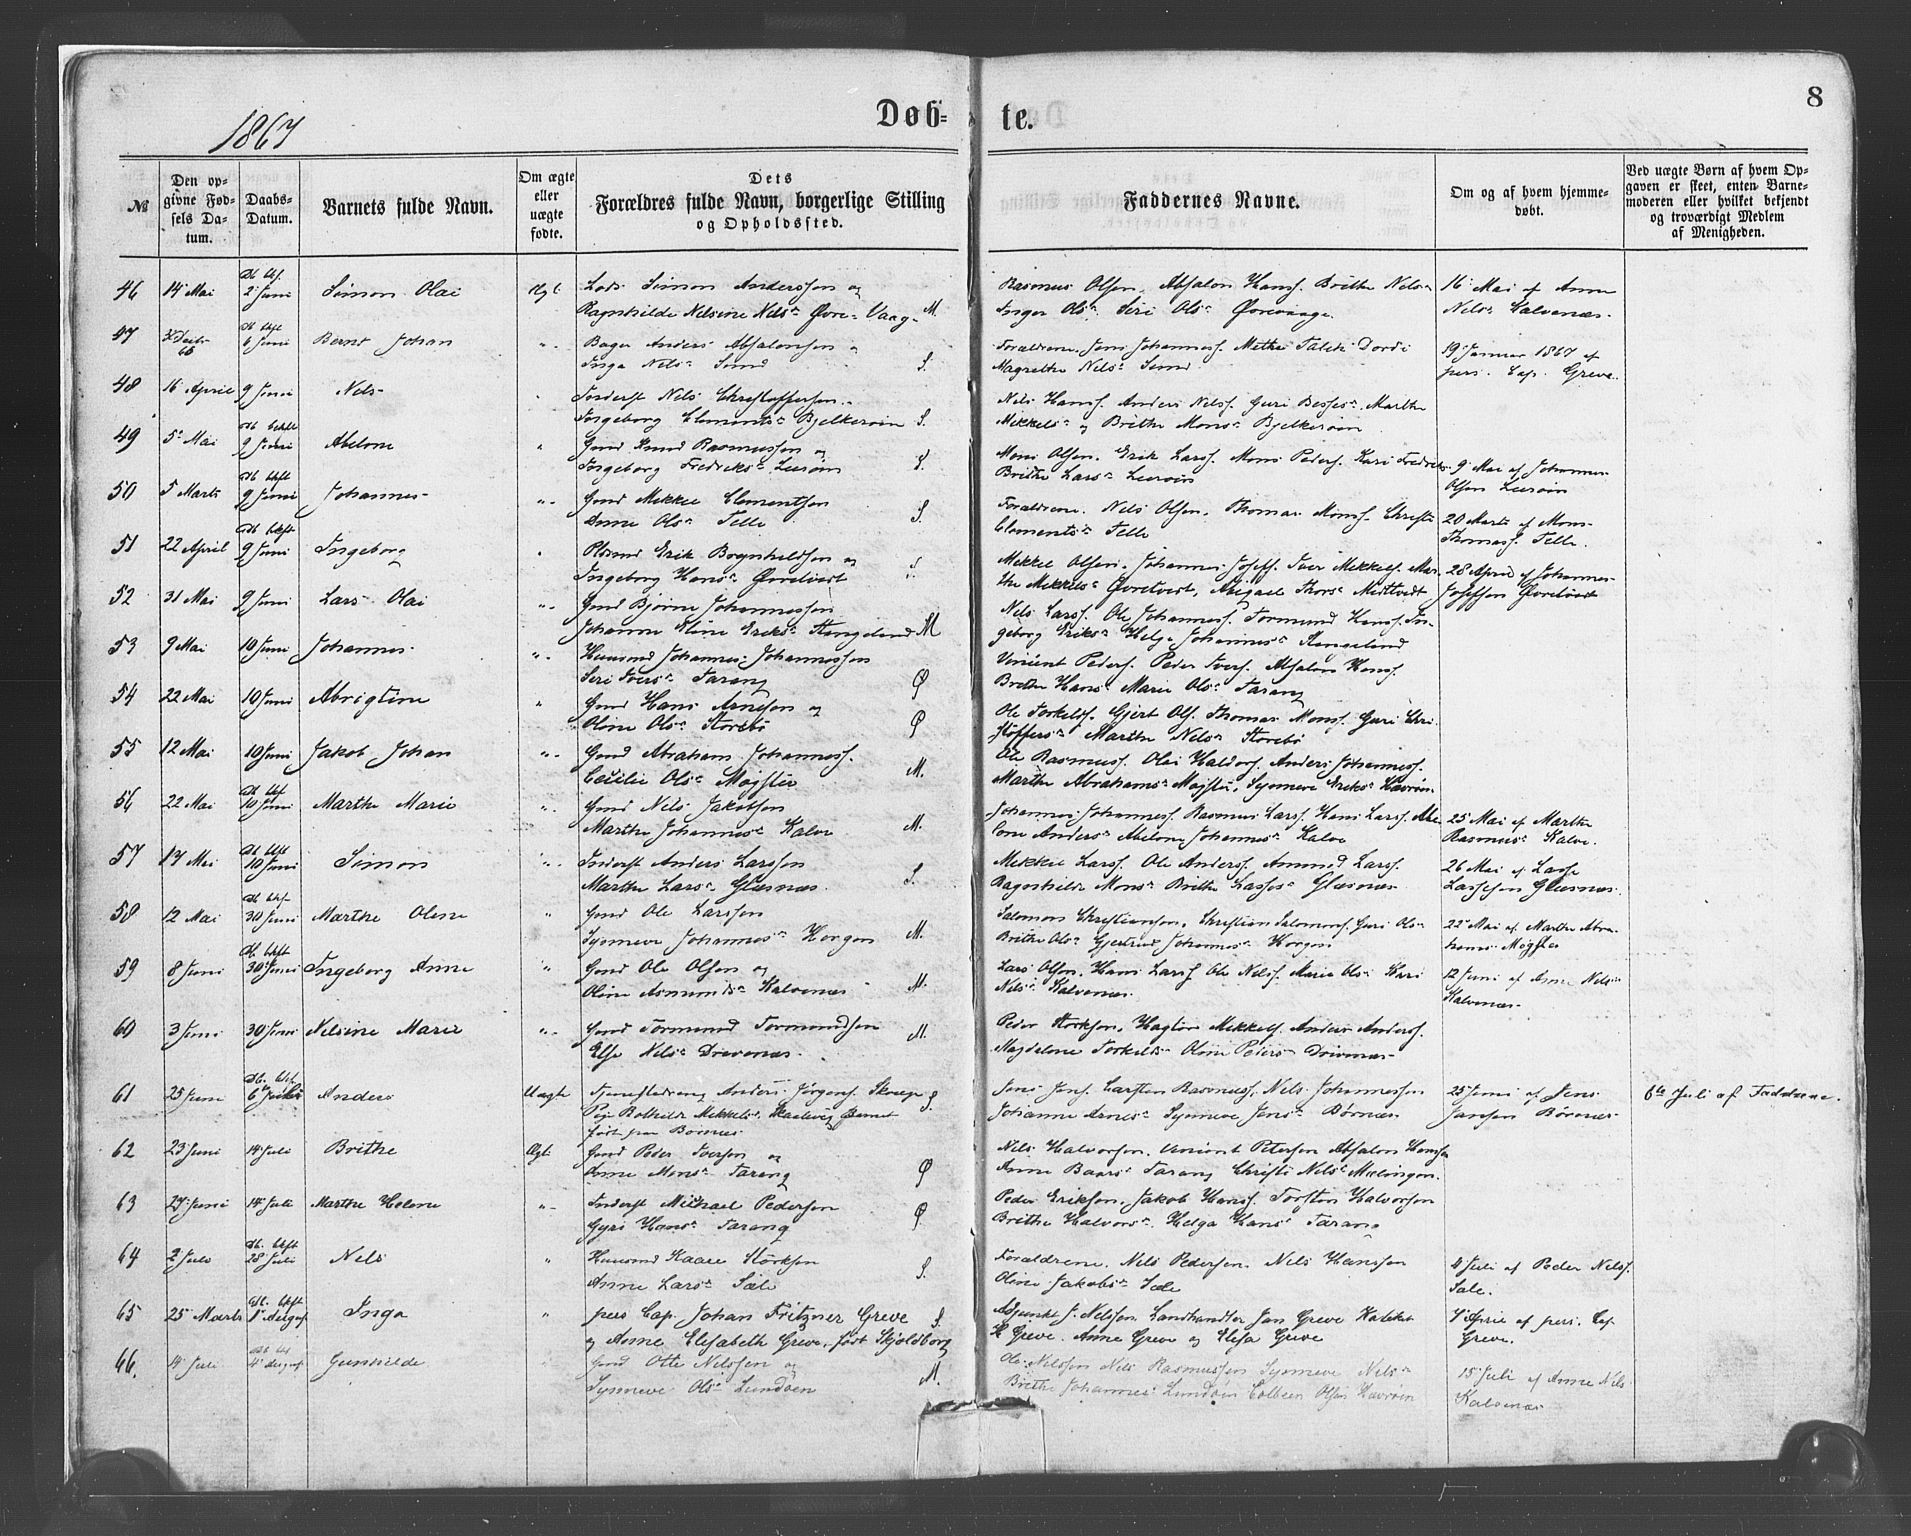 1867
Døb-
te.
8
№
Den op-
givne Fød-
sels Da-
tum.
Daabs-
Datum.
Barnets fulde Navn.
Om ægte
eller
uægte
fødte.
Dets
Forældres fulde Navn, borgerlige Stilling
og Opholdssted.
Faddernes Navne.
Om og af hvem hjemme-
døbt.
Ved uægte Børn af hvem Op-
gaven er skeet, enten Barne-
moderen eller hvilket bekjendt
og troværdigt Medlem
af Menigheden.
46 14 Mai 2 Juni Simon Olai Ægt Simon Anderssen og
Ragnhilde Nelsine Nels Øvre-Vaag M.
Rasmus Olsen, Absalon Hans. Brithe Nels
Inger Ols Seri Ols Øvrevaage
16 Mai af Anne
Nels Kalvenæs
47 6 Juni Bernt Johan Anders Absalonsen
Inga Nels Sund S.
Forældrene, Jens Johannes. Methe Dordi
Magrethe Nels Sund
19 Januar 1867 af
pers. Cap. Greve.
48 16 April 9 Juni Nels
Inderst Nels Christoffersen
Ingeborg Clements Bjelkerøen S.
Nels Hans. Anders Nels. Guri Marthe
Mikkels og Brithe Mons Bjelkerøen
49 5 Mai 9 Juni Abelone
Gmd Knud Rasmussen og
Ingeborg Fredriks Lerøen S.
Mons Olsen, Erik Lars. Mons Peders. Kari Fredriks
Brithe Lars Lerøen
9 Mai af Johannes
Olsen Lerøen
50 5 Marts 9 Juni Johannes
Gmd Mikkel Clementsen
Anne Ols Telle S.
Forældrene. Nels Olsen, Thomas Mons. Christi
Clements Telle
20 Marts af Mons
Thomass. Telle.
51 22 April 9 Juni Ingeborg
Erik Brynhildsen og
Ingeborg Hans Øvretvedt S.
Mikkel Olsen, Johannes Josefs. Iver Mikkels. Mar-
the Mikkels Øvretvedt, Abigael Thors Midttvedt
28 April af Johannes
Josefsen Øvretvedt
52 31 Mai 9 Juni Lars Olai
Gmd Bjørne Johannessen
Johanne Eline Eriks Stangeland M
Nels Lars. Ole Johannes. Tormund Hans. In-
geborg Eriks Helga Johannes Stangeland
53 9 Mai 10 Juni Johannes
Huusmd Johannes Johannessen
Seri Ivers Tarang Ø
Vincent Peders. Peder Ivers. Absalon Hans.
Brithe Hans Marie Ols Tarang
54 22 Mai 10 Juni
Gmd Hans Arnesen og
Oline Ols Storebø Ø
Ole Torkelds. Gjert Ols. Thomas Mons. Guri Chri
stoffers Marthe Nels Storebø
55 12 Mai 10 Juni Jakob Johan
Gmd Abraham Johannes.
Cecilie Ols Møgster M.
Ole Rasmus. Olai Haldors. Anders Johannes.
Marthe Abrahams Møgster, Synneve Eriks Havrøen
56 22 Mai 10 Juni Marthe Marie
Gmd Nels Jakobsen
Marthe Johannes Kalve M.
Johannes Johannes. Rasmus Lars. Hans Lars. Abe
lone Anders Abelone Johannes Kalve
25 Mai af Marthe
Rasmus Kalve.
57 17 Mai 10 Juni Simon
Inderst Anders Larssen
Marthe Lars Glæsnæs. S.
Mikkel Lars. Ole Anders. Amund Lars.
Ragnhilde Mons Brithe Lasses Glæsnæs
26 Mai af Lasse
Lassesen Glæsnæs.
58 12 Mai 30 Juni Marthe Oline
Gmd Ole Larssen
Synneve Johannes Horgen M.
Salomon Christiansen, Christian Salomons. Guri Ols
Brithe Ols Gjertrud Johannes Horgen
22 Mai af Marthe Abra-
hams Møgster
59 8 Juni 30 Juni Ingeborg Anne
Gmd Ole Olsen og
Oline Asmunds Kalvenæs M.
Lars Olsen, Hans Lars. Ole Nels. Marie Ols Kari
Nels Kalvenæs.
12 Juni af Anne Nels
Kalvenæs
60 3 Juni 30 Juni Nelsine Marie
Gmd Tormund Tormundsen
Else Nels Drevenæs M.
Peder Størksen, Mikkels. Anders Anders.
Magdalene Torkelds Oline Peders Drivenæs
61 25 Juni 6 Juli Anders Uægte
Anders Jørgens. Skaege S.
Pige Bothilde Mikkels. Barnet
født paa Børnæs
Jens Jens. Carsten Rasmus., Nels Johannessen
Johanne Arnes Synneve Jens Børnæs
25 Juni af Jens
Jansen Børnæs
6te Juli af Fadderne.
62 23 Juni 14 Juli Brithe Ægt
Gmd Peder Iversen og
Anne Mons Tarang Ø
Nels Halvorsen. Vincent Petersen Absalon Hansen
Anne Baars Tarang Christi Nels Mælingen.
63 27 Juni 14 Juli Marthe Helene
Inderst Michael Pedersen
Gyri Hans Tarang Ø
Peder Eriksen, Jakob Hans. Torsten Halvorsen
Brithe Halvors. Helga Hans Tarang
64 2 Juli 28 Juli Nels
Huusmd Kaare Størksen
Anne Lars Sæle S.
Forældrene. Nels Pedersen. Nels Hanssen
Oline Jakobs Sæle
4 Juli af Peder Nels.
Sæle.
65 25 Marts Inga
pers Cap. Johan Fritzner Greve S.
og Anne Elisabeth Greve, født Skjoldborg
Adjunkt J. Nelssen Landhandler Jan Greve Kadet
Greve. Anne Greve og Elisa Greve
7 April af pers. Cap
Greve.
66. 14 Juli Gunhilde
Gmd Otte Nelssen og
Synneve Ols Lundøen M.
Ole Nelssen Nels Rasmussen Synneve Nels
Brithe Johannes Lundøen Colbeen Olsen Havrøen
15 Juli af Anne Nels
Kalvenæs